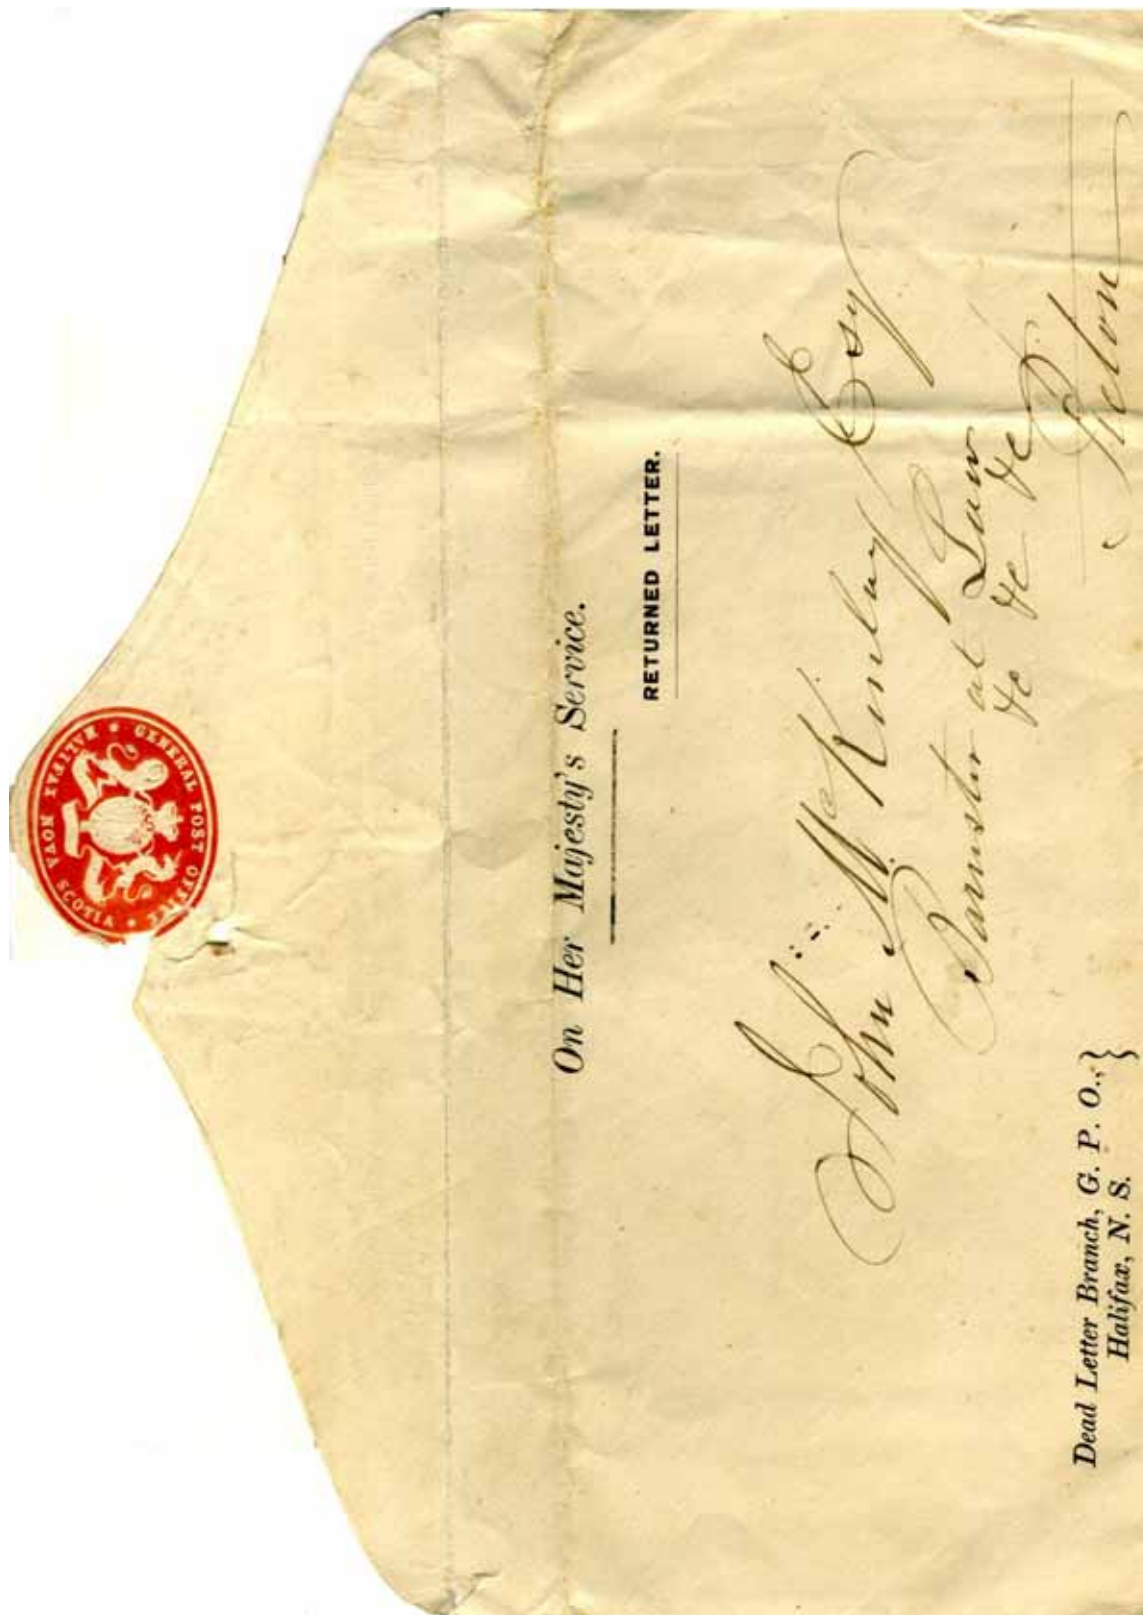 GENERAL POST OFFICE • HALIFAX NOVA SCOTIA •
On Her Majesty's Service.
RETURNED LETTER.
John McKinlay Esq
Barrister at Law
&c &c &c
Pictou
Dead Letter Branch, G. P. O.,
Halifax, N. S.